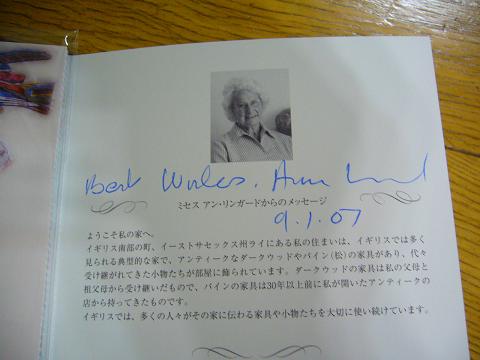 Best Wishes. Ann Lingard
ミセス アン・リンガードからのメッセージ
9.1.07
ようこそ私の家へ。
イギリス南部の町、イーストサセックス州ライにある私の住まいは、イギリスでは多く
見られる典型的な家で、アンティークなダークウッドやパイン(松)の家具があり、代々
受け継がれてきた小物たちが部屋に飾られています。ダークウッドの家具は私の父母と
祖父母から受け継いだもので、パインの家具は30年以上前に私が開いたアンティークの
店から持ってきたものです。
イギリスでは、多くの人々がその家に伝わる家具や小物たちを大切に使い続けています。